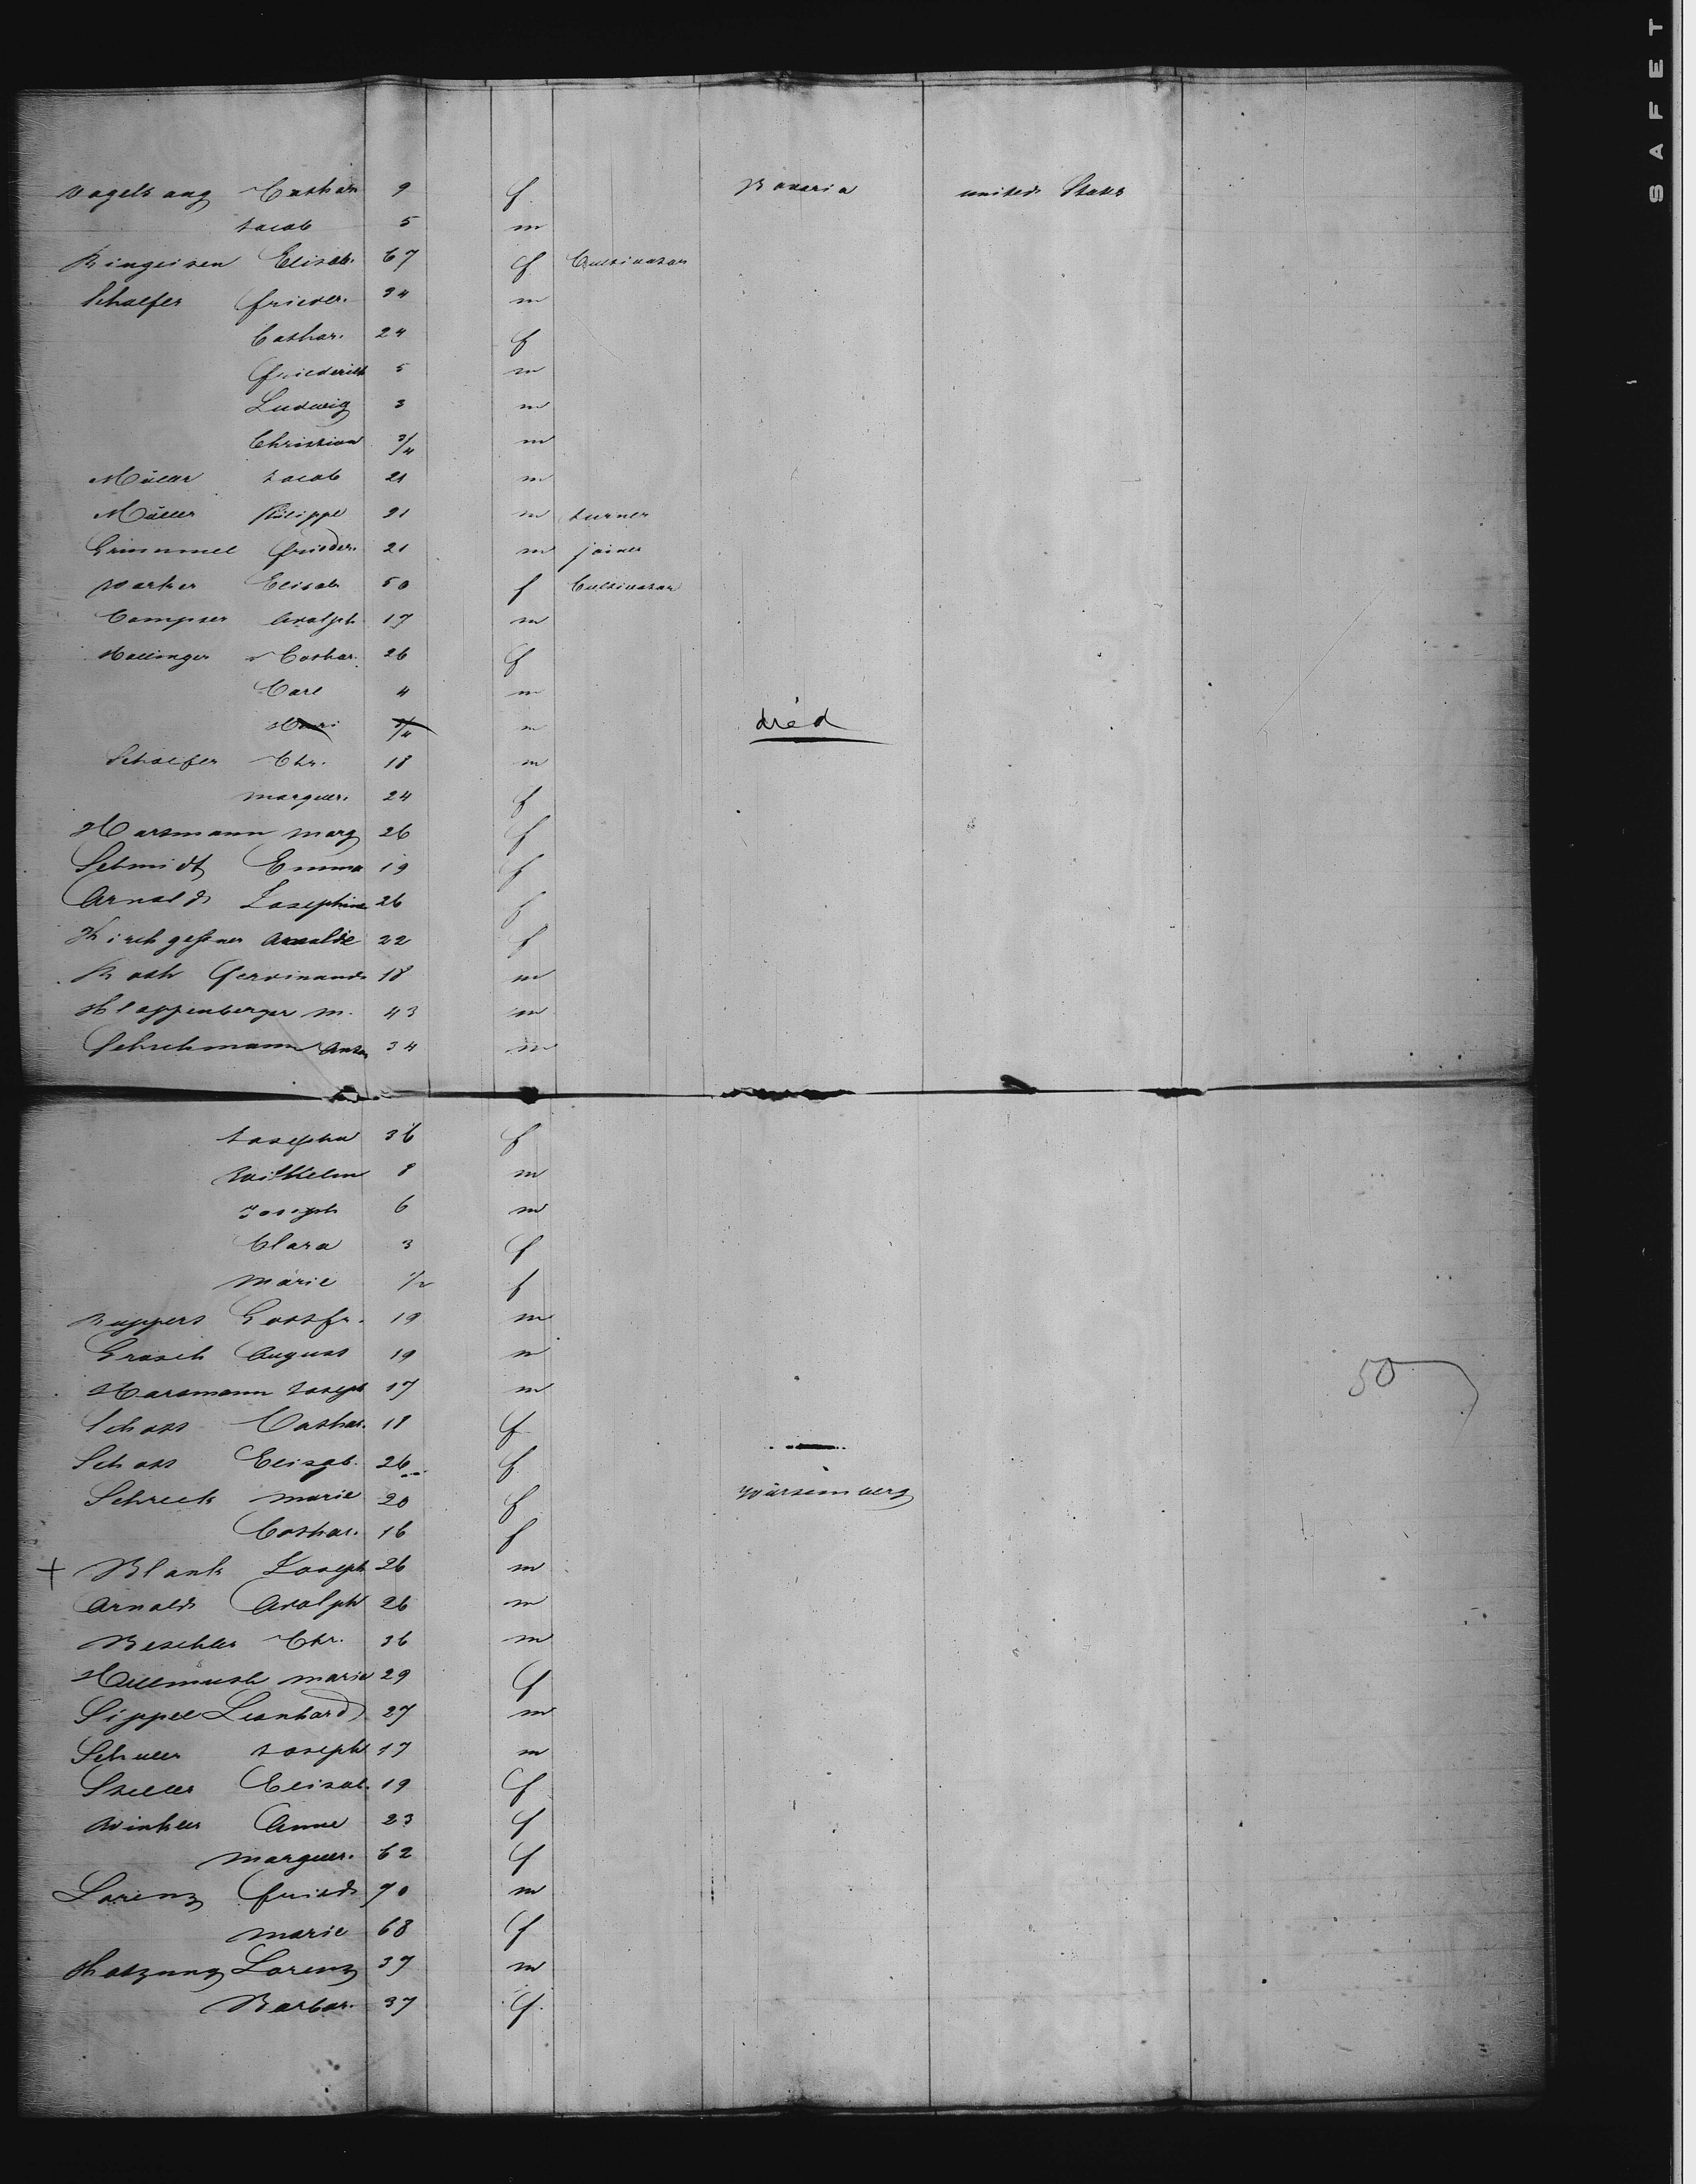 SAFET
Vogelsang Cathar. 9 f. Bavaria united States
Jacob 5 m
Ringeisen Elisab. 67 f Cultivator
Schaefer Frieder. 34 m
Cathar. 24 f
Friederich 5 m
Ludwig 3 m
Christian 3/4 m
Müller Jacob 21 m
Müller Philippe 21 m turner
Grimmel Frieder. 21 m joiner
Elisab 50 f Cultivator
Adolph 17 m
Cathar. 26 f
Carl 4 m
3/4 m died
Schaefer Chr. 18 m
Marguer. 24 f
Hartmann Marg 26 f
Schmidt Emma 19 f
Arnold Josephine 26 f
Kirchgeßner Amalie 22 f
Roth Ferdinand 18 m
Klappenberger M. 43 m
Anton 34 m
Josepha 36 f
Wilhelm 8 m
Joseph 6 m
Clara 3 f
Marie 1/2 f
Ruppert Gottfr. 19 m
Grosch August 19 m
50
Hartmann Joseph 17 m
Schott Cathar. 18 f
Schott Elisab. 26 f
Schreck Marie 20 f Würtemberg
Cathar. 16 f
+ Blank Joseph 26 m
Arnold Adolph 26 m
Beschler Chr. 36 m
Hellmuth Marie 29 f
Sippel Leonhard 27 m
Schuler Joseph 17 m
Steller Elisab. 19 f
Winkler Anne 23 f
Marguer. 62 f
Lorenz Fried 70 m
Marie 68 f
Hatzung Lorenz 37 m
Barbar. 37 f.